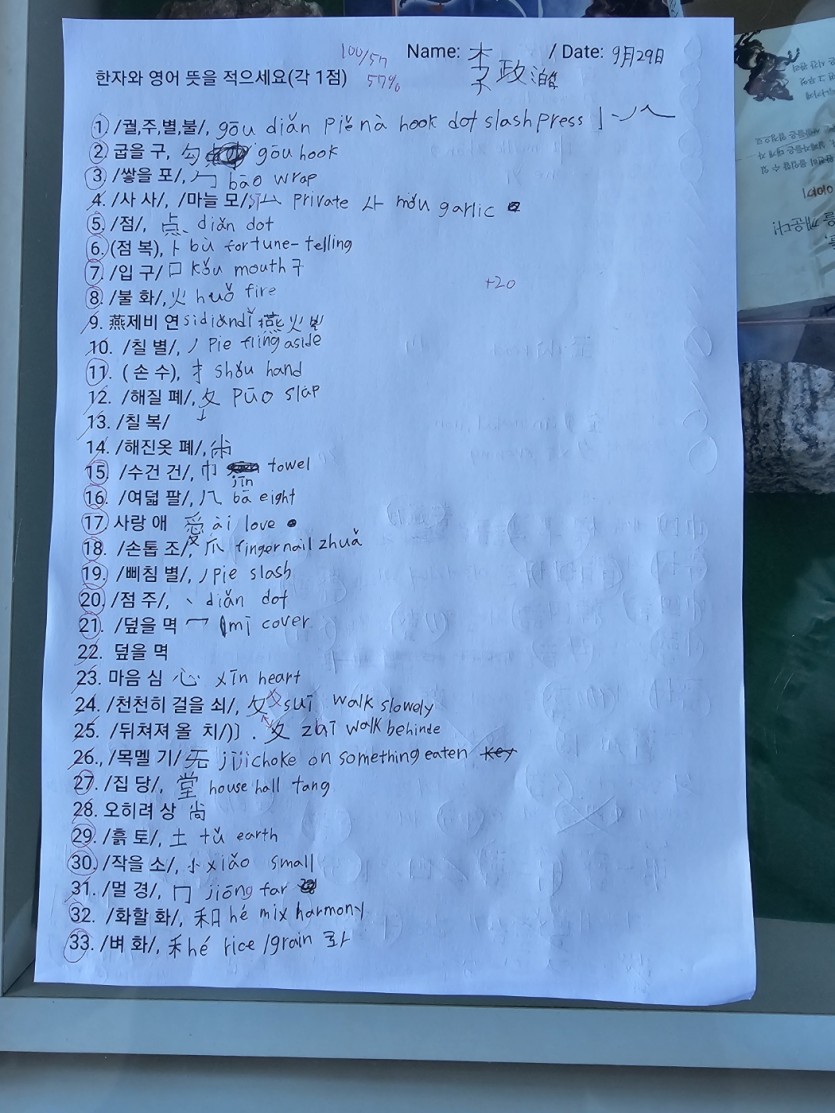 100/57
57%
Name: 李政澔 / Date: 9月29日
한자와 영어 뜻을 적으세요(각 1점)
1. /궐,주,별,불/, gōu diǎn Piě nà hook dot slash press 亅丶丿乀
2. 굽을 구, 勾 gōu hook
3. /쌓을 포/, 勹 bāo wrap
4. /사 사/, /마늘 모/, 厶 Private 厶 mǒu garlic
5. /점/, 点、diǎn dot
6. (점 복), 卜 bǔ fortune-telling
7. /입 구/ 口 kǒu mouth 구
8. /불 화/, 火 huǒ fire
+20
9. 燕제비 연 sidiǎndǐ 燕火灬
10. /칠 별/, 丿 Pie fling aside
11. ( 손 수), 扌 shǒu hand
12. /해질 폐/, 攵 Pūo slap
13. /칠 복/ ↓
14. /해진옷 폐/, 㡀
15. /수건 건/, 巾 jīn towel
16. /여덟 팔/, 八 bā eight
17. 사랑 애 愛 ài love
18. /손톱 조/, 爪 fingernail zhuǎ
19. /삐침 별/, 丿 pie slash
20. /점 주/, 丶 diǎn dot
21. /덮을 멱 冖 mī cover
22. 덮을 멱
23. 마음 심 心 xīn heart
24. /천천히 걸을 쇠/, 夊 suī walk slowely
25. /뒤쳐져 올 치/)〕. 夂 zhī walk behinde
26., /목멜 기/ 旡 jì choke on something eaten key
27. /집 당/, 堂 house hall tang
28. 오히려 상 尚
29. /흙 토/, 土 tǔ earth
30. /작을 소/, 小 xiǎo small
31. /멀 경/, 冂 jiōng far
32. /화할 화/, 和 hé mix harmony
33. /벼 화/, 禾 hé rice /grain 화